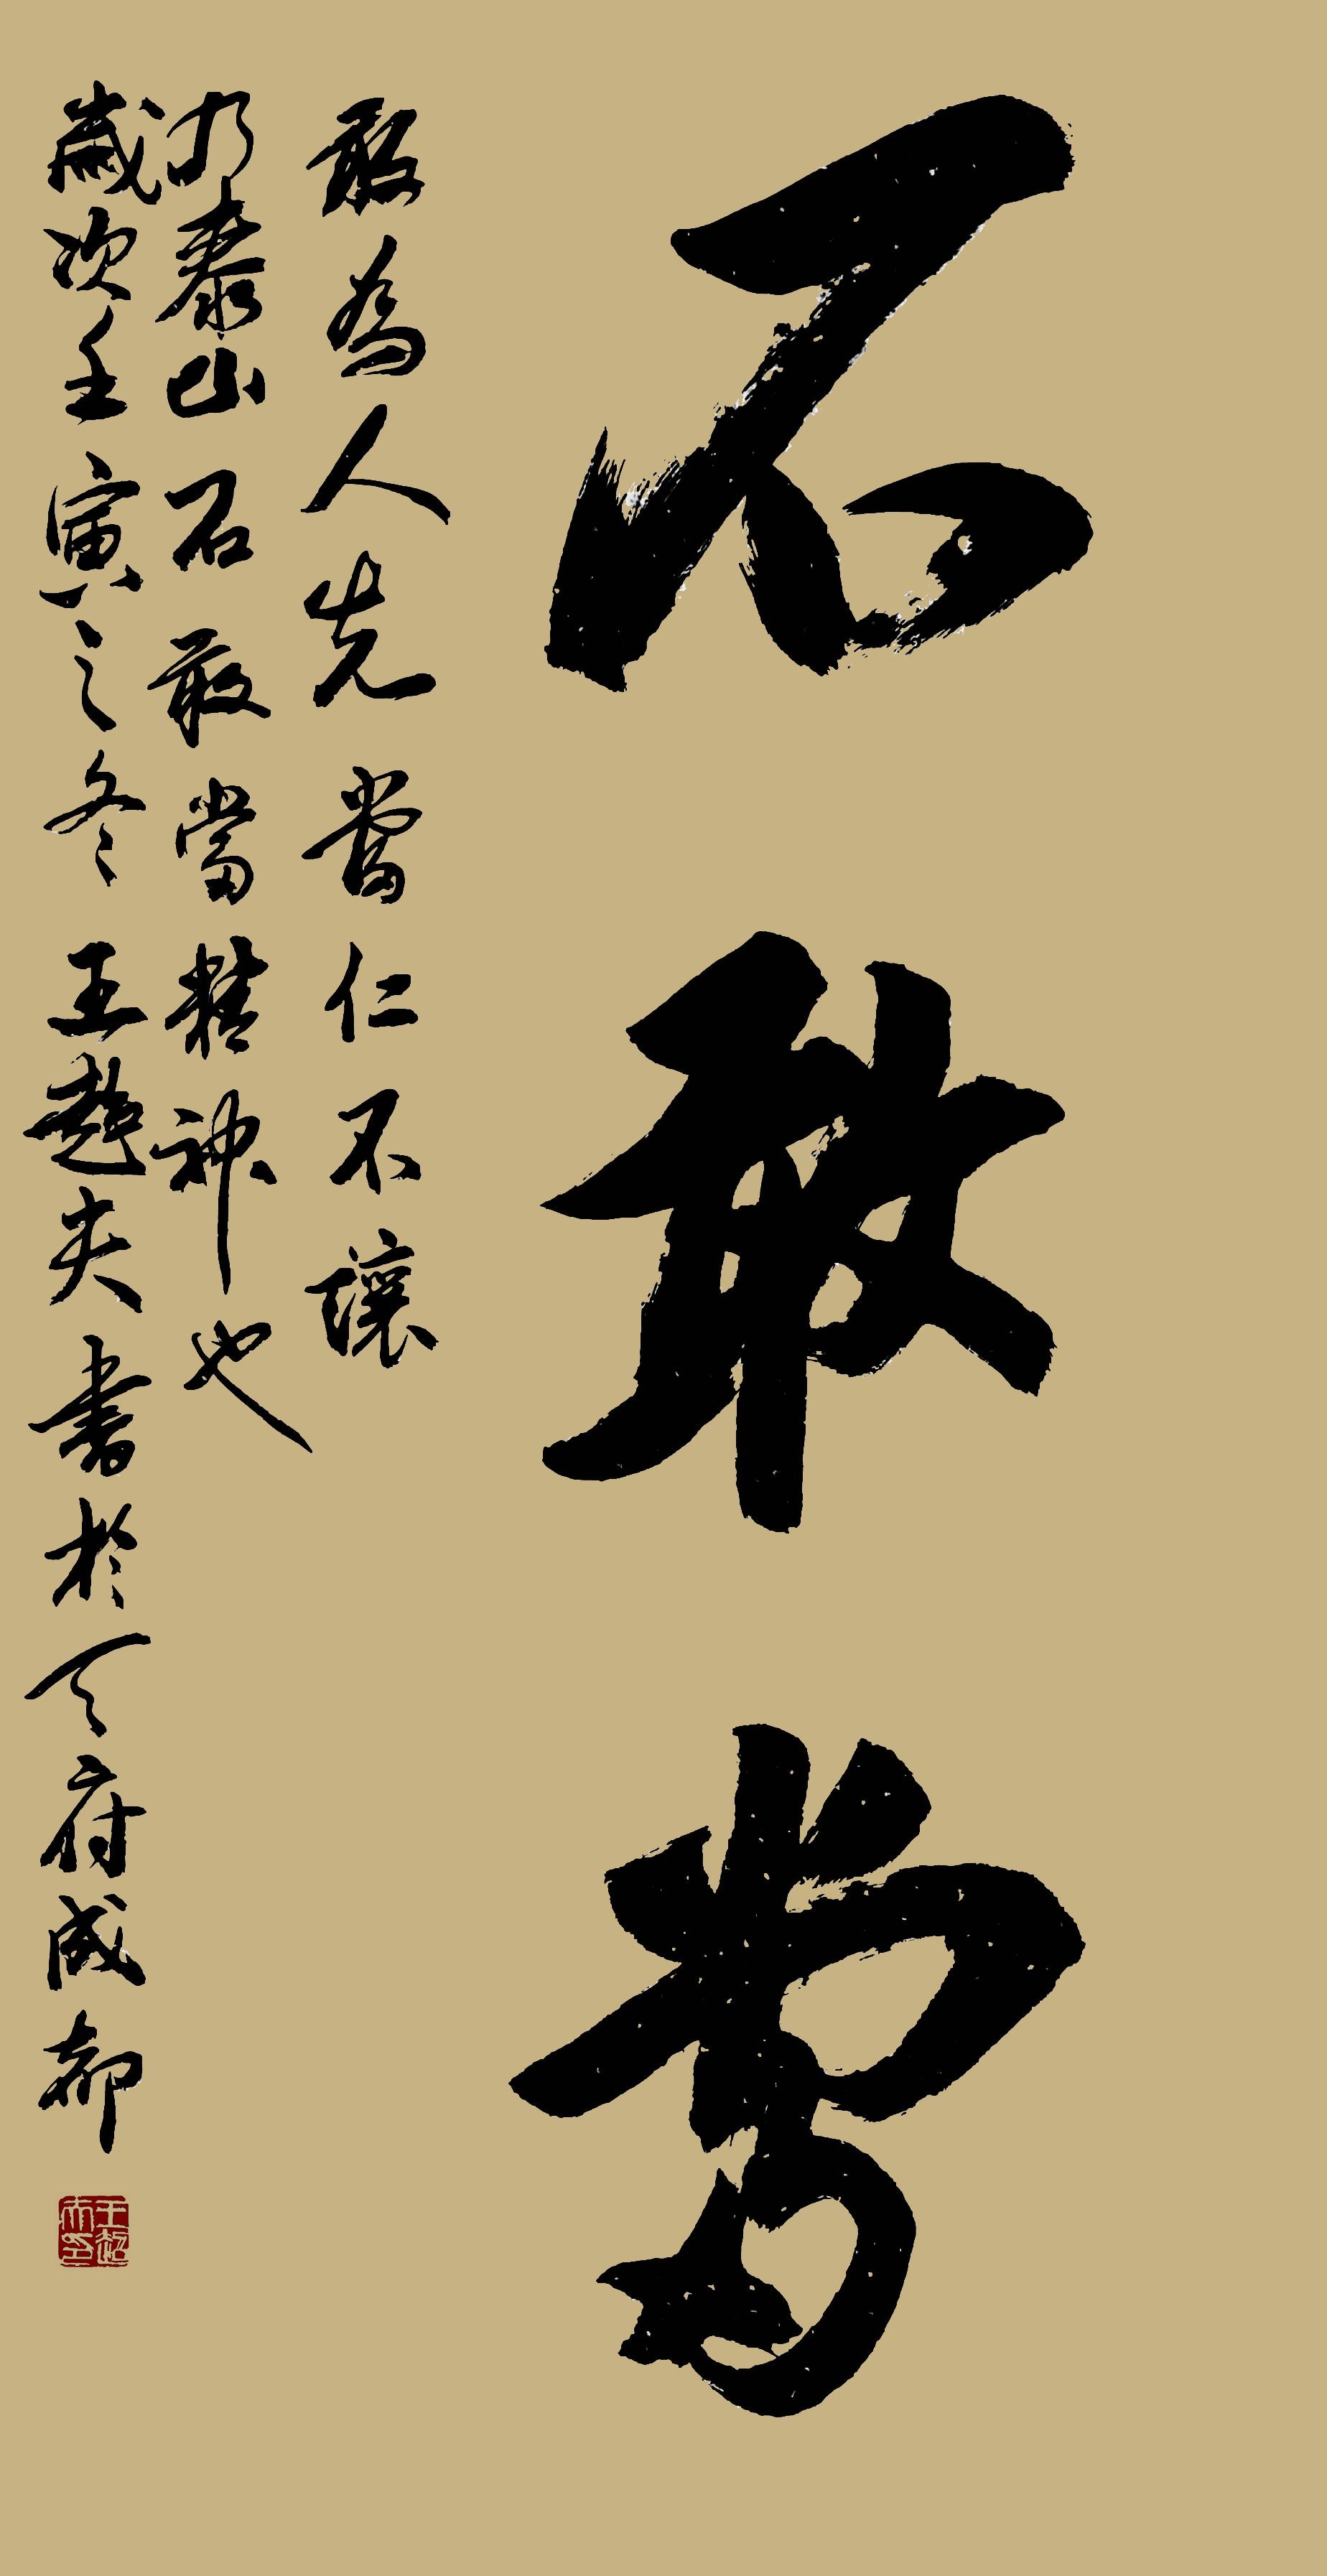 石敢當
敢為人先當仁不讓
乃泰山石敢當精神也
歲次壬寅之冬王超夫書於天府成都
王超夫印